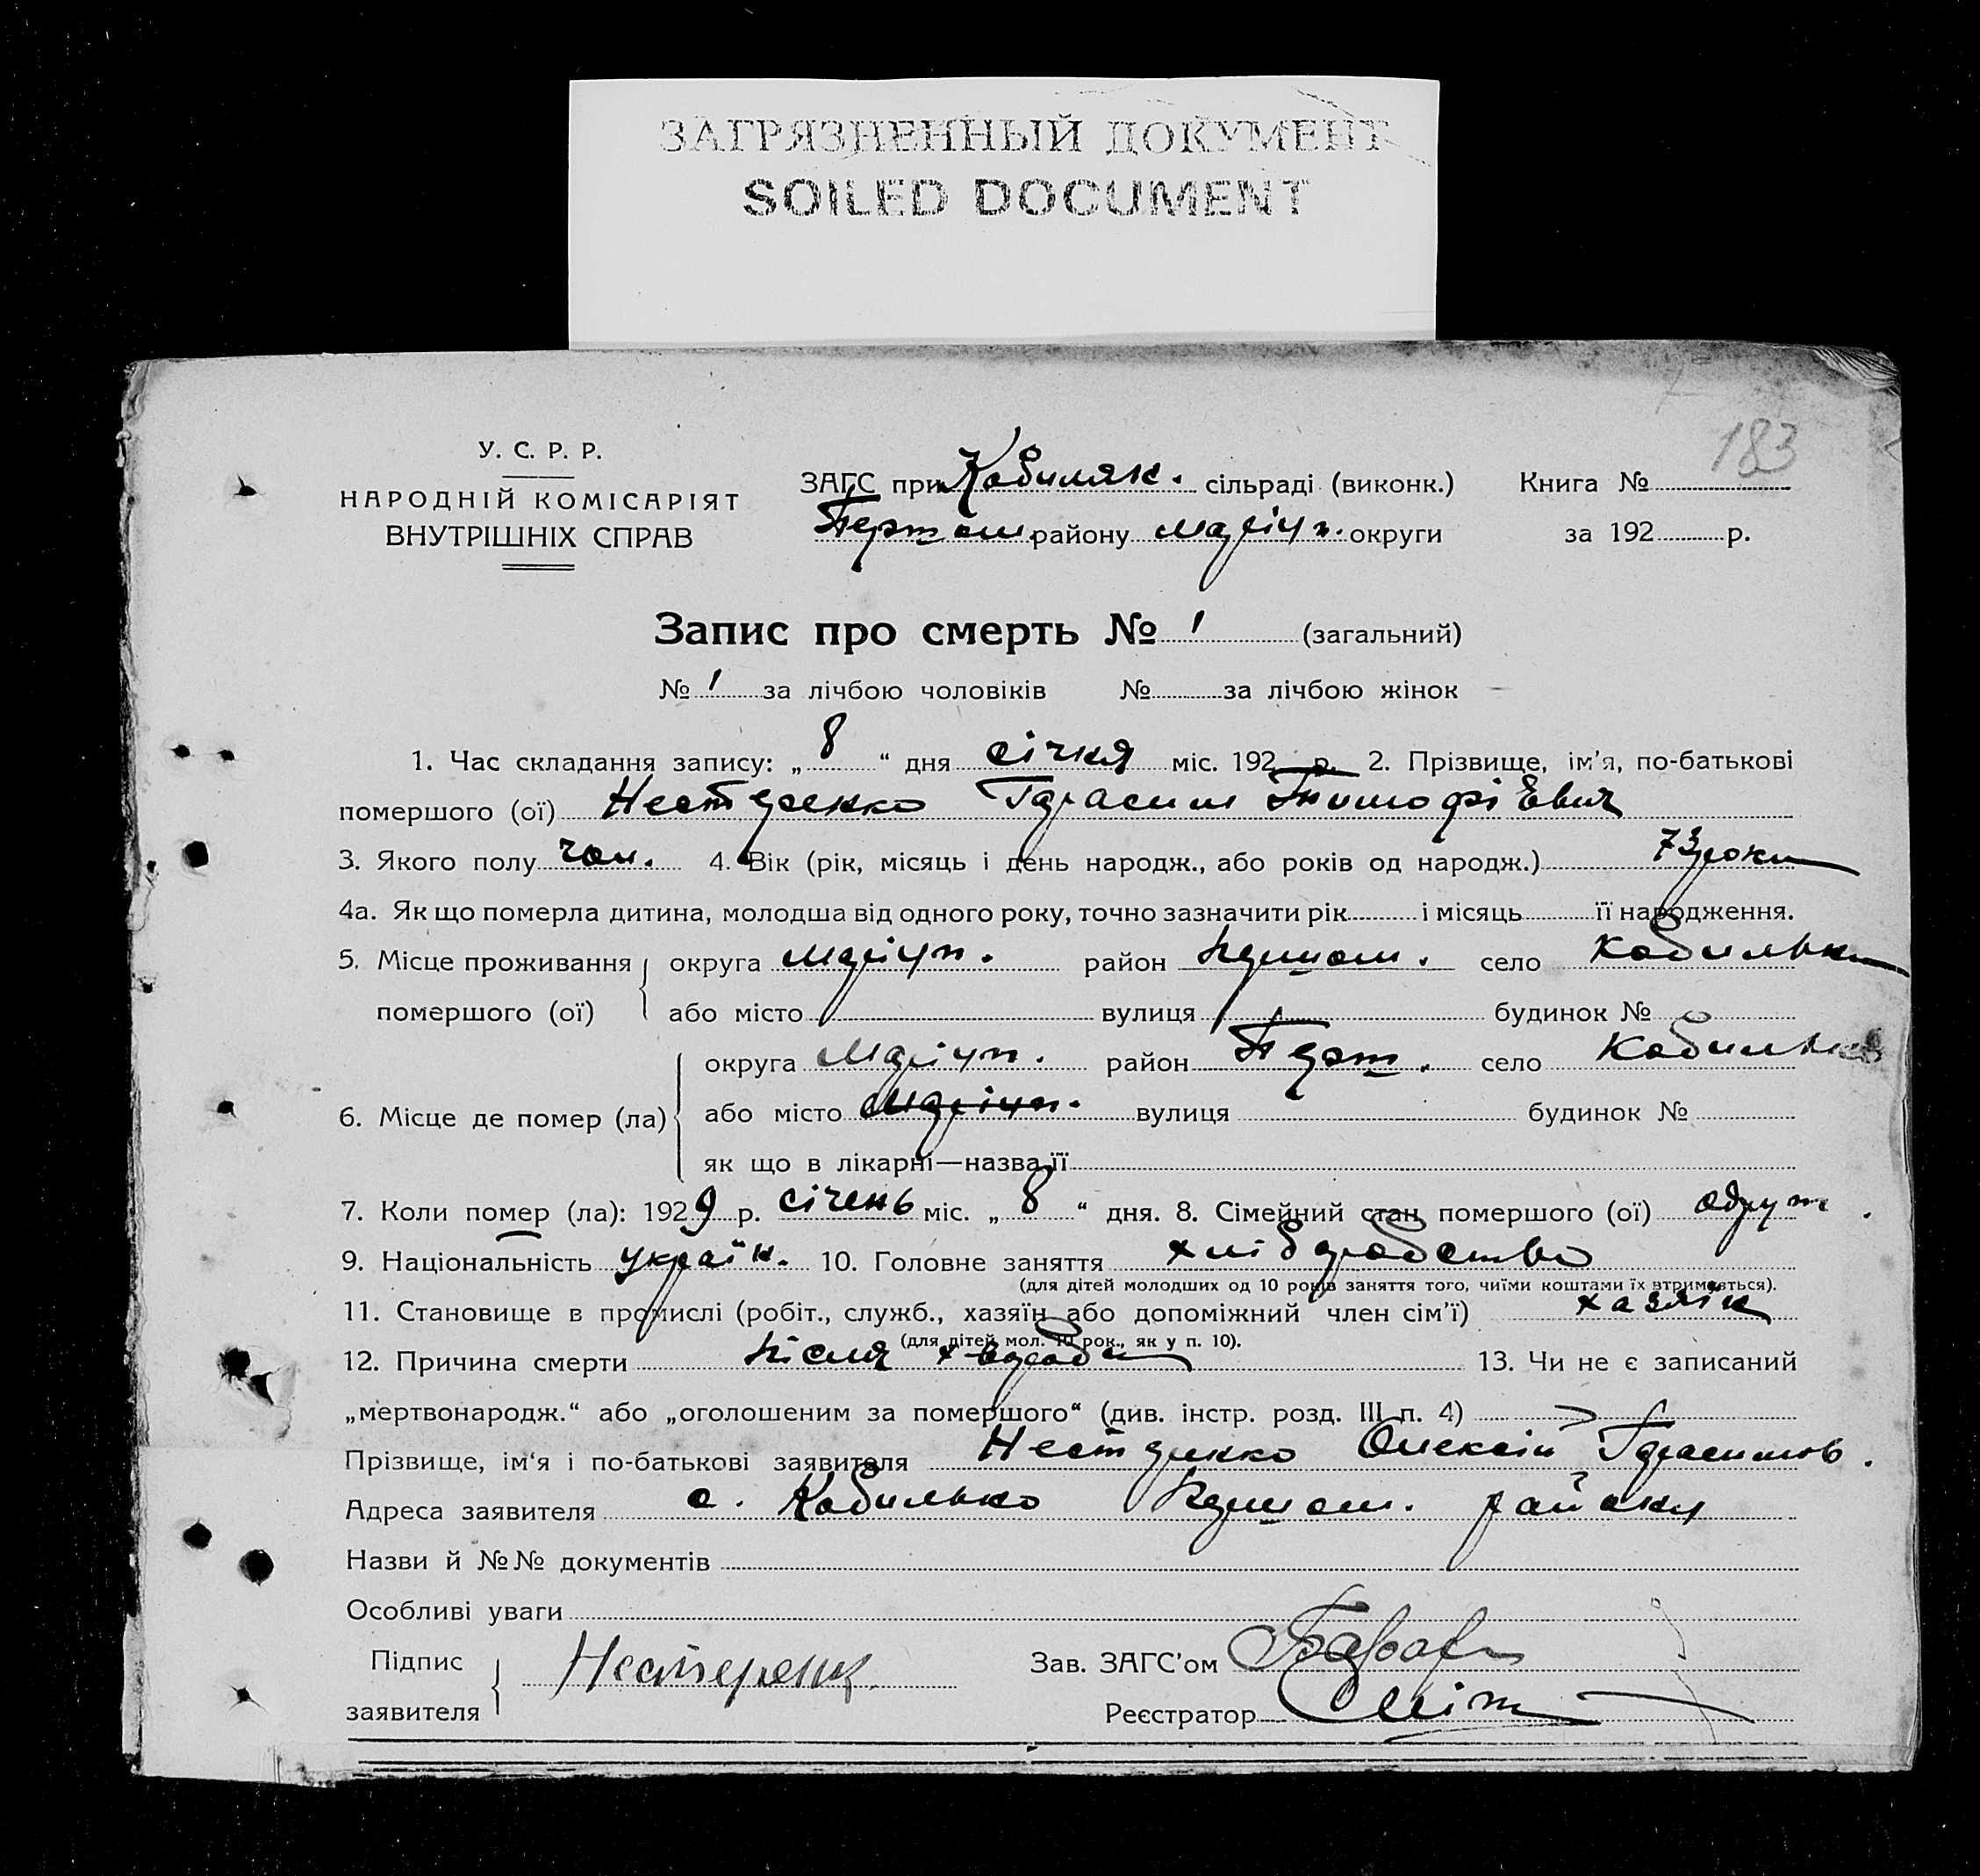 ЗАГРЯЗНЕННЫЙ ДОКУМЕНТ
SOILED DOCUMENT
183
У. С. Р. Р.
НАРОДНІЙ КОМІСАРІЯТ
ВНУТРІШНІХ СПРАВ
ЗАГС при Кобиляк. сільраді (виконк.)
района Маріуп. округи
Книга №
за 192 р.
Запис про смерть № 1 (загальний)
№ 1 за лічбою чоловіків № за лічбою жінок
1. Час складання запису: „ 8 “ дня січня міс. 192 р. 2. Прізвище, ім'я, по-батькові
помершого (ої) Нестеренко Герасим Тимофієвич
3. Якого полу чол. 4. Вік (рік, місяць і день народж., або років од народж.) 73 роки
4а. Як що померла дитина, молодша від одного року, точно зазначити рік і місяць її народження.
5. Місце проживання округа Маріуп. район село Кобильки
помершого (ої) або місто вулиця будинок №
6. Місце де помер (ла) округа Маріуп. район село
або місто Маріуп. вулиця будинок №
як що в лікарні—назва її
7. Коли помер (ла): 1929 р. січень міс. „ 8 “ дня. 8. Сімейний стан помершого (ої) одруж.
9. Національність україн. 10. Головне заняття хліборобство
(для дітей молодших од 10 років заняття того, чиїми коштами їх втримається).
11. Становище в промислі (робіт., служб., хазяїн або допоміжний член сім'ї) хазяїн
(для дітей мол. 10 рок., як у п. 10).
12. Причина смерти після хвороби 13. Чи не є записаний
„мертвонародж.“ або „оголошеним за помершого“ (див. інстр. розд. III п. 4)
Прізвище, ім'я і по-батькові заявителя Нестеренко Олексій Герасимов.
Адреса заявителя с. Кобилько району
Назви й №№ документів
Особливі уваги
Підпис
заявителя Нестеренк
Зав. ЗАГС'ом
Реєстратор